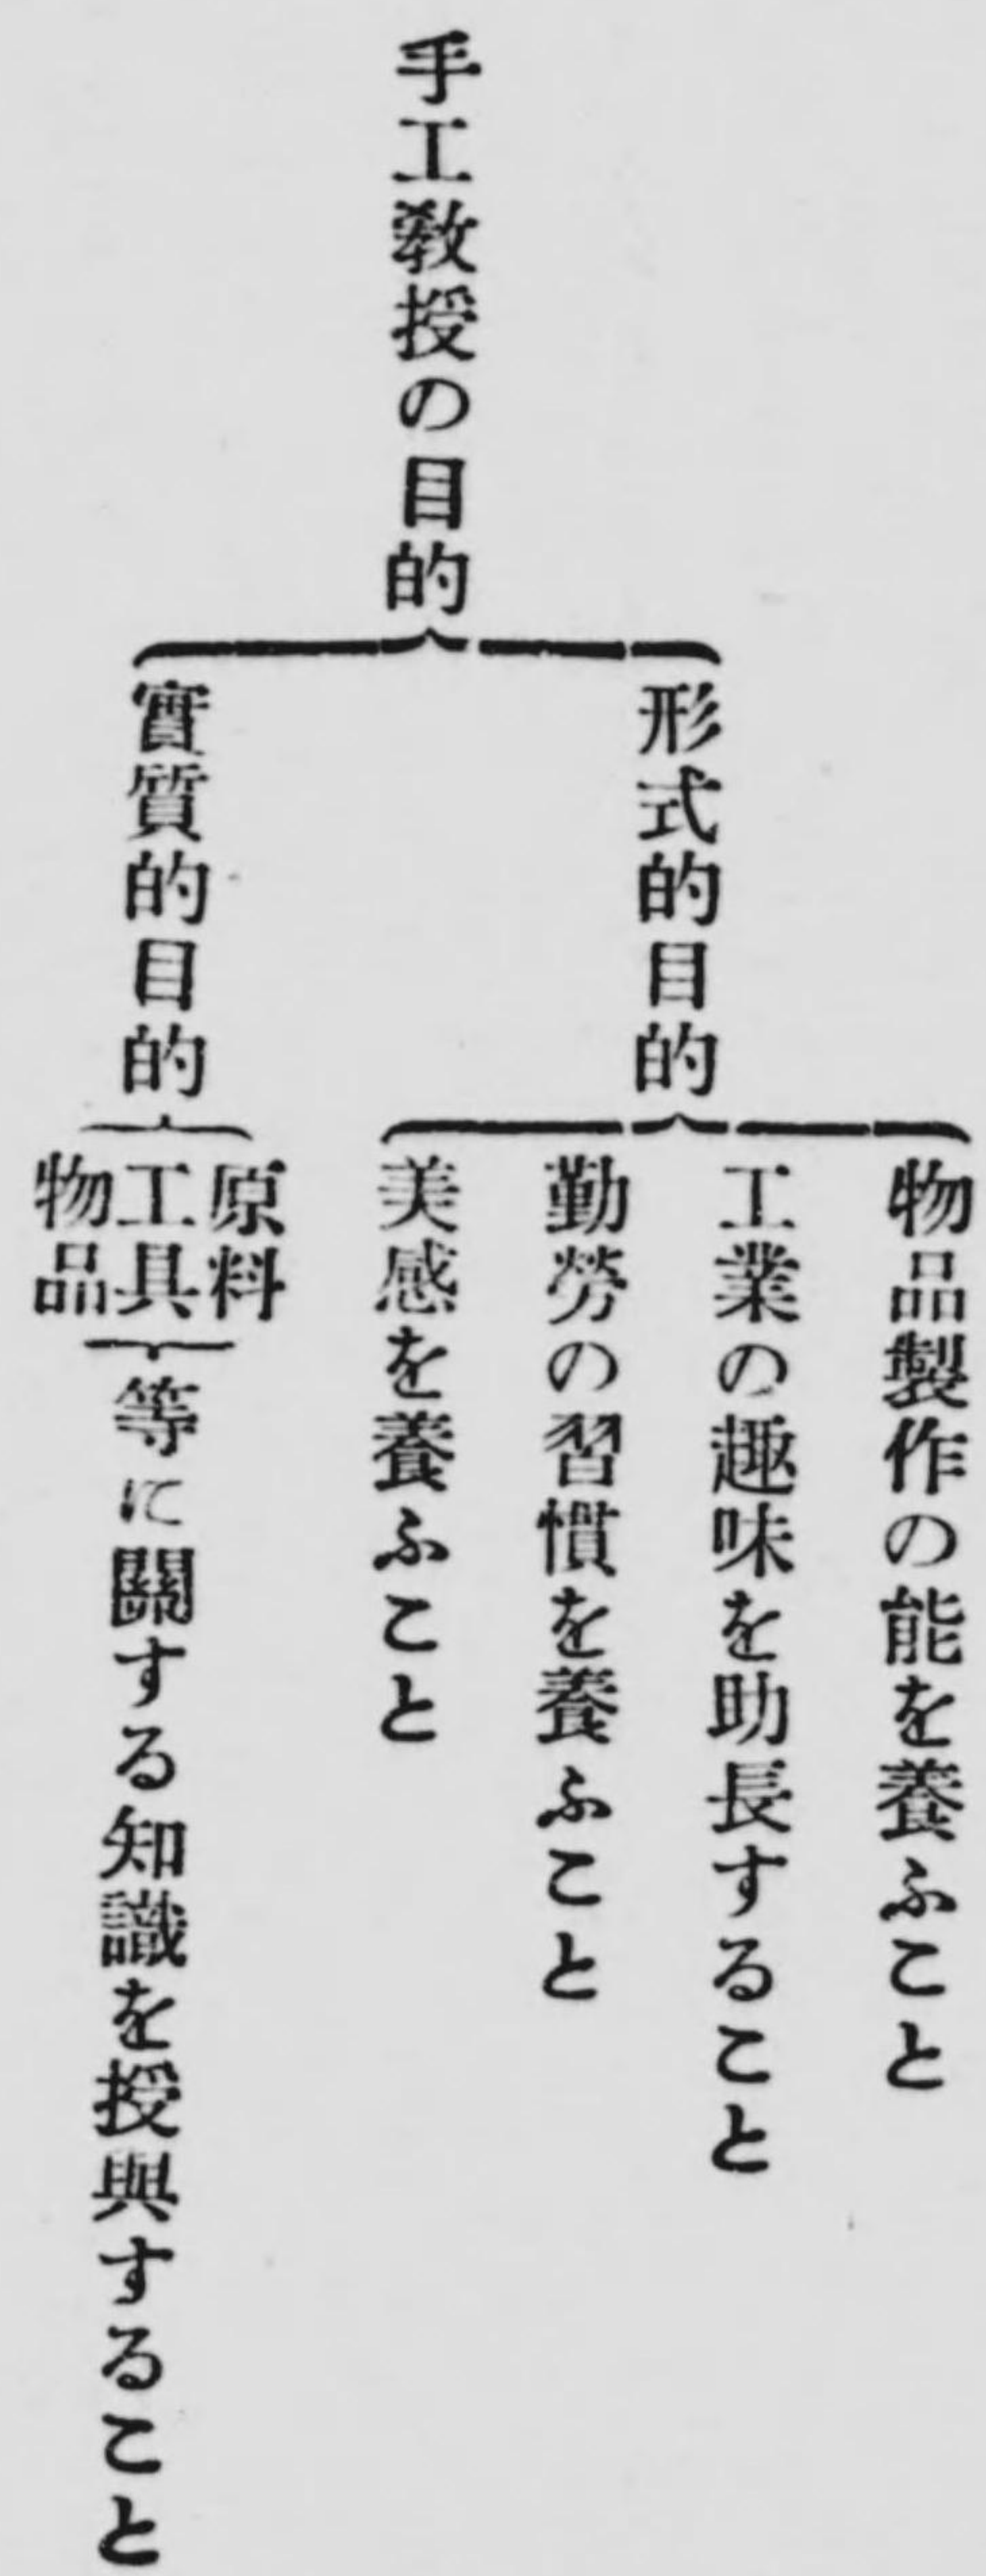 手工敎授の目的
形式的目的
物品製作の能を養ふこと
工業の趣味を助長すること
勤勞の習慣を養ふこと
美感を養ふこと
實質的目的
原料
工具
物品
等に關する知識を授與すること